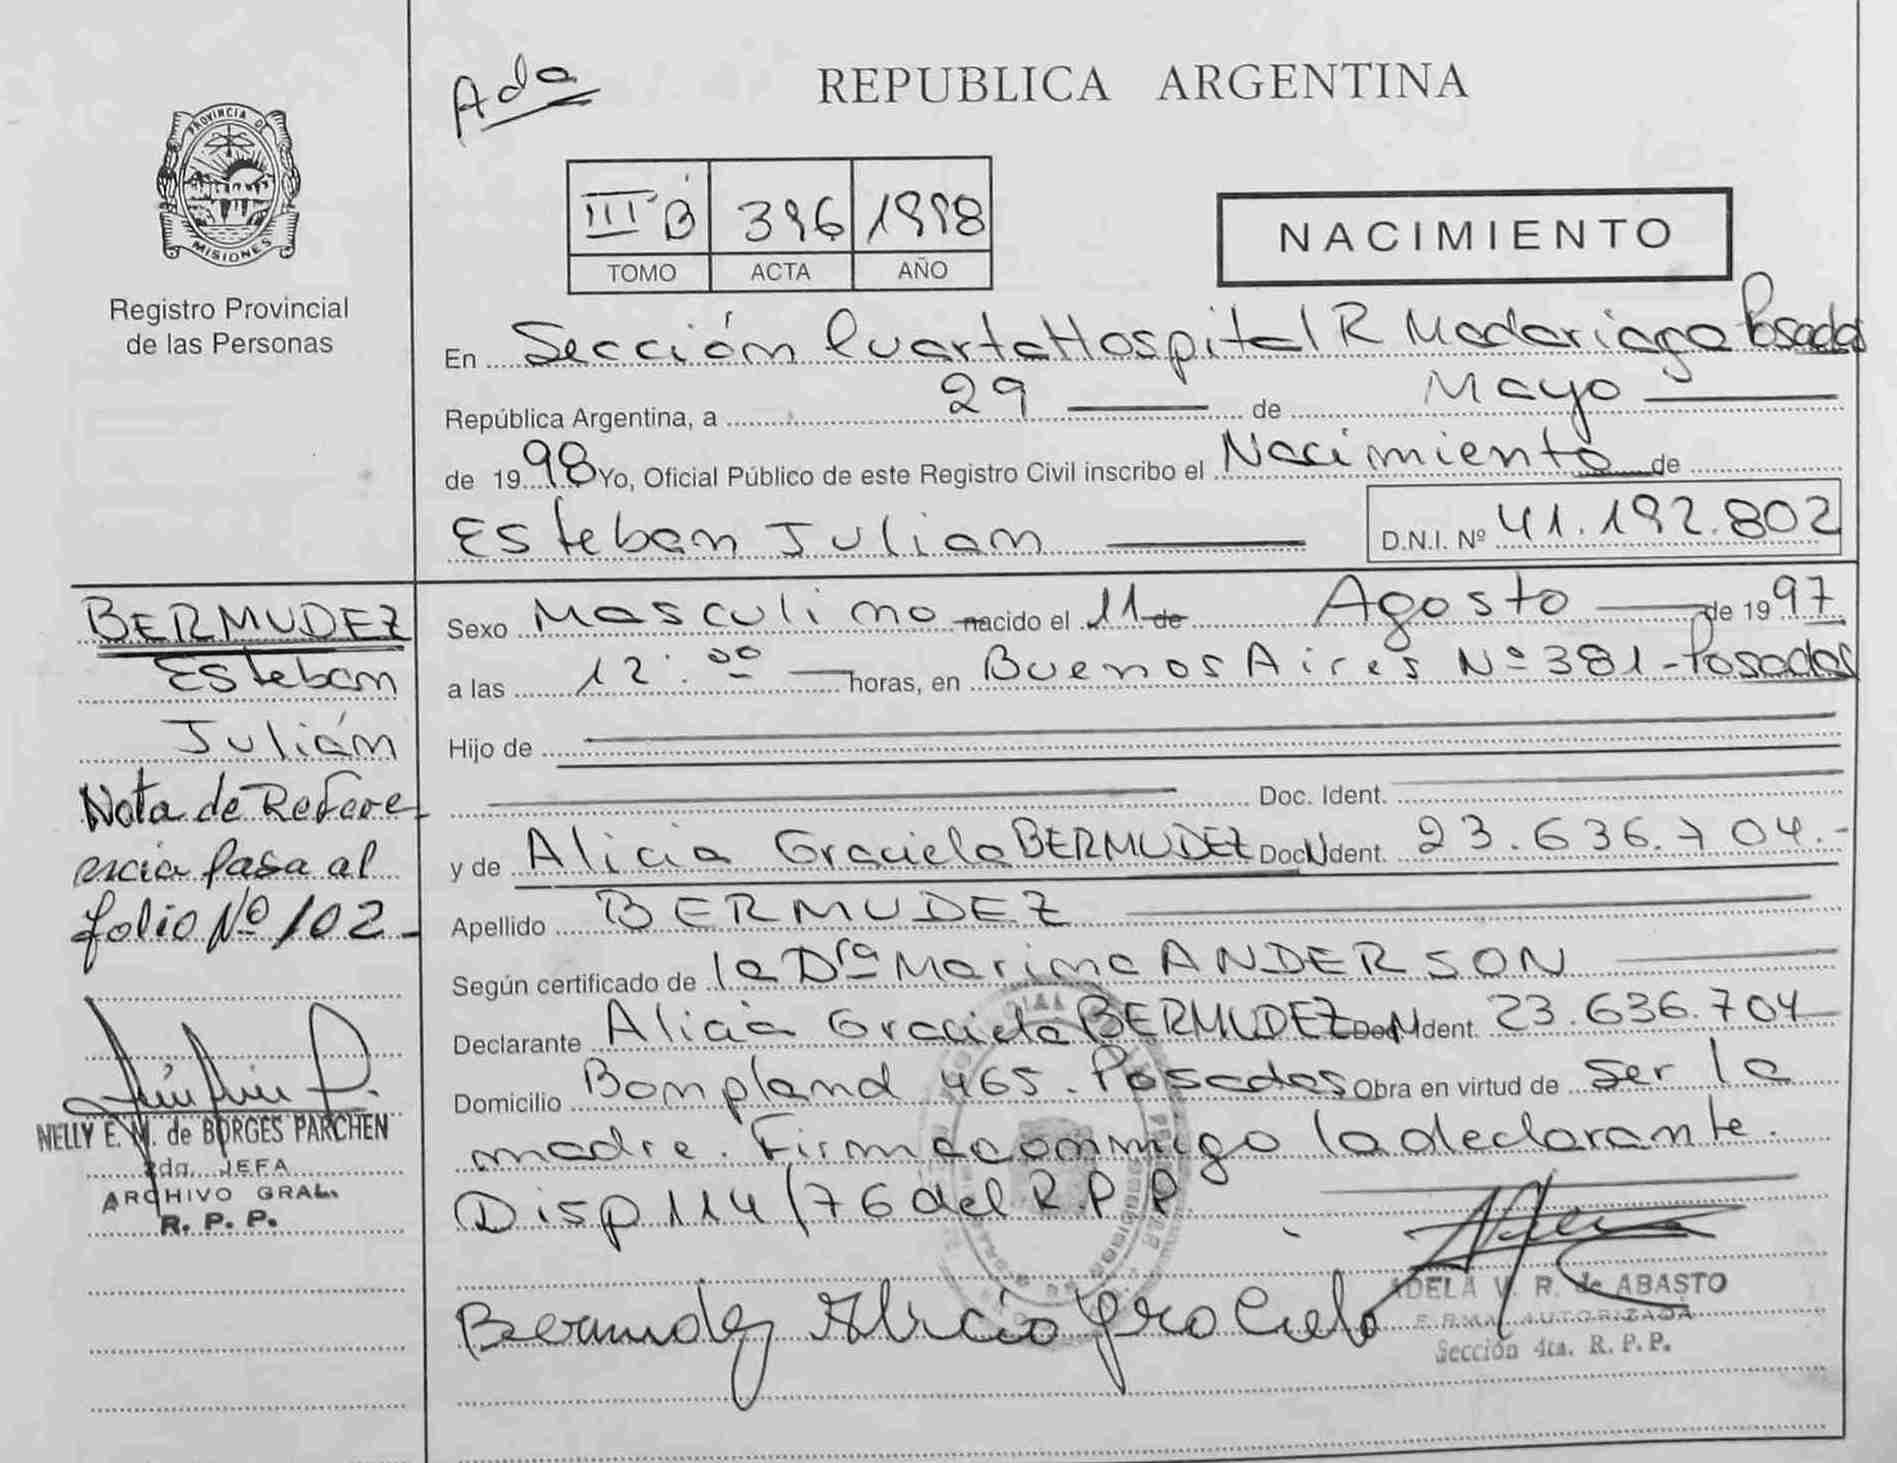 Ada
REPUBLICA ARGENTINA
PROVINCIA DE
MISIONES
Registro Provincial
de las Personas
III B 396 1998
TOMO ACTA AÑO
NACIMIENTO
En Sección Cuarta Hospital R Madariaga Posadas
República Argentina, a 29 de Mayo
de 1998 Yo, Oficial Público de este Registro Civil inscribo el Nacimiento de
Esteban Julian D.N.I. Nº 41.192.802
BERMUDEZ
Esteban
Julián
Nota de Refere
ncia Pasa al
folio Nº 102
NELLY E. M. de BORGES PARCHEN
2da. JEFA
ARCHIVO GRAL.
R. P. P.
Sexo Masculino nacido el 11 de Agosto de 1997
a las 12:00 horas, en Buenos Aires Nº 381-Posadas
Hijo de
Doc. Ident.
y de Alicia Graciela BERMUDEZ Doc. Ident. 23.636.704.-
Apellido BERMUDEZ
Según certificado de la Dra Marina ANDERSON
Declarante Alicia Graciela BERMUDEZ Doc. Ident. 23.636.704
Domicilio Bompland 465. Posadas Obra en virtud de ser la
madre. Firma conmigo la declarante.
Disp 114/76 del R.P.P.
Bermudez Alicia Graciela
ADELA V. R. de ABASTO
FIRMA AUTORIZADA
Sección 4ta. R. P. P.